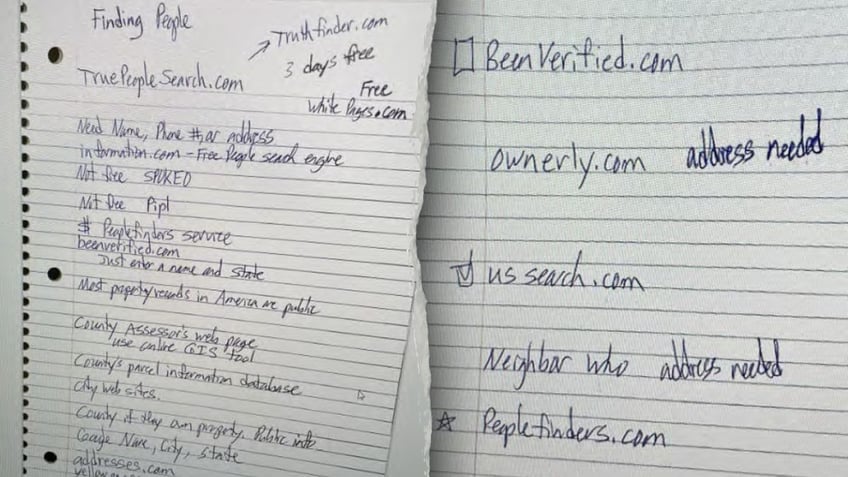 Finding People
Truthfinder.com
3 days free
TruePeopleSearch.com
Free
White Pages.com
Need Name, Phone #, or address
information.com - Free People search engine
Not free SPOKEO
Not free Pipl
# Peoplefinders service
beenverified.com
Just enter a name and state
Most property records in America are public
County Assessor's web page
use online GIS tool
County's parcel information database
city web sites.
County if they own property. Public info
Google Name, City, State
addresses.com
BeenVerified.com
ownerly.com address needed
us search.com
Neighbor who address needed
Peoplefinders.com